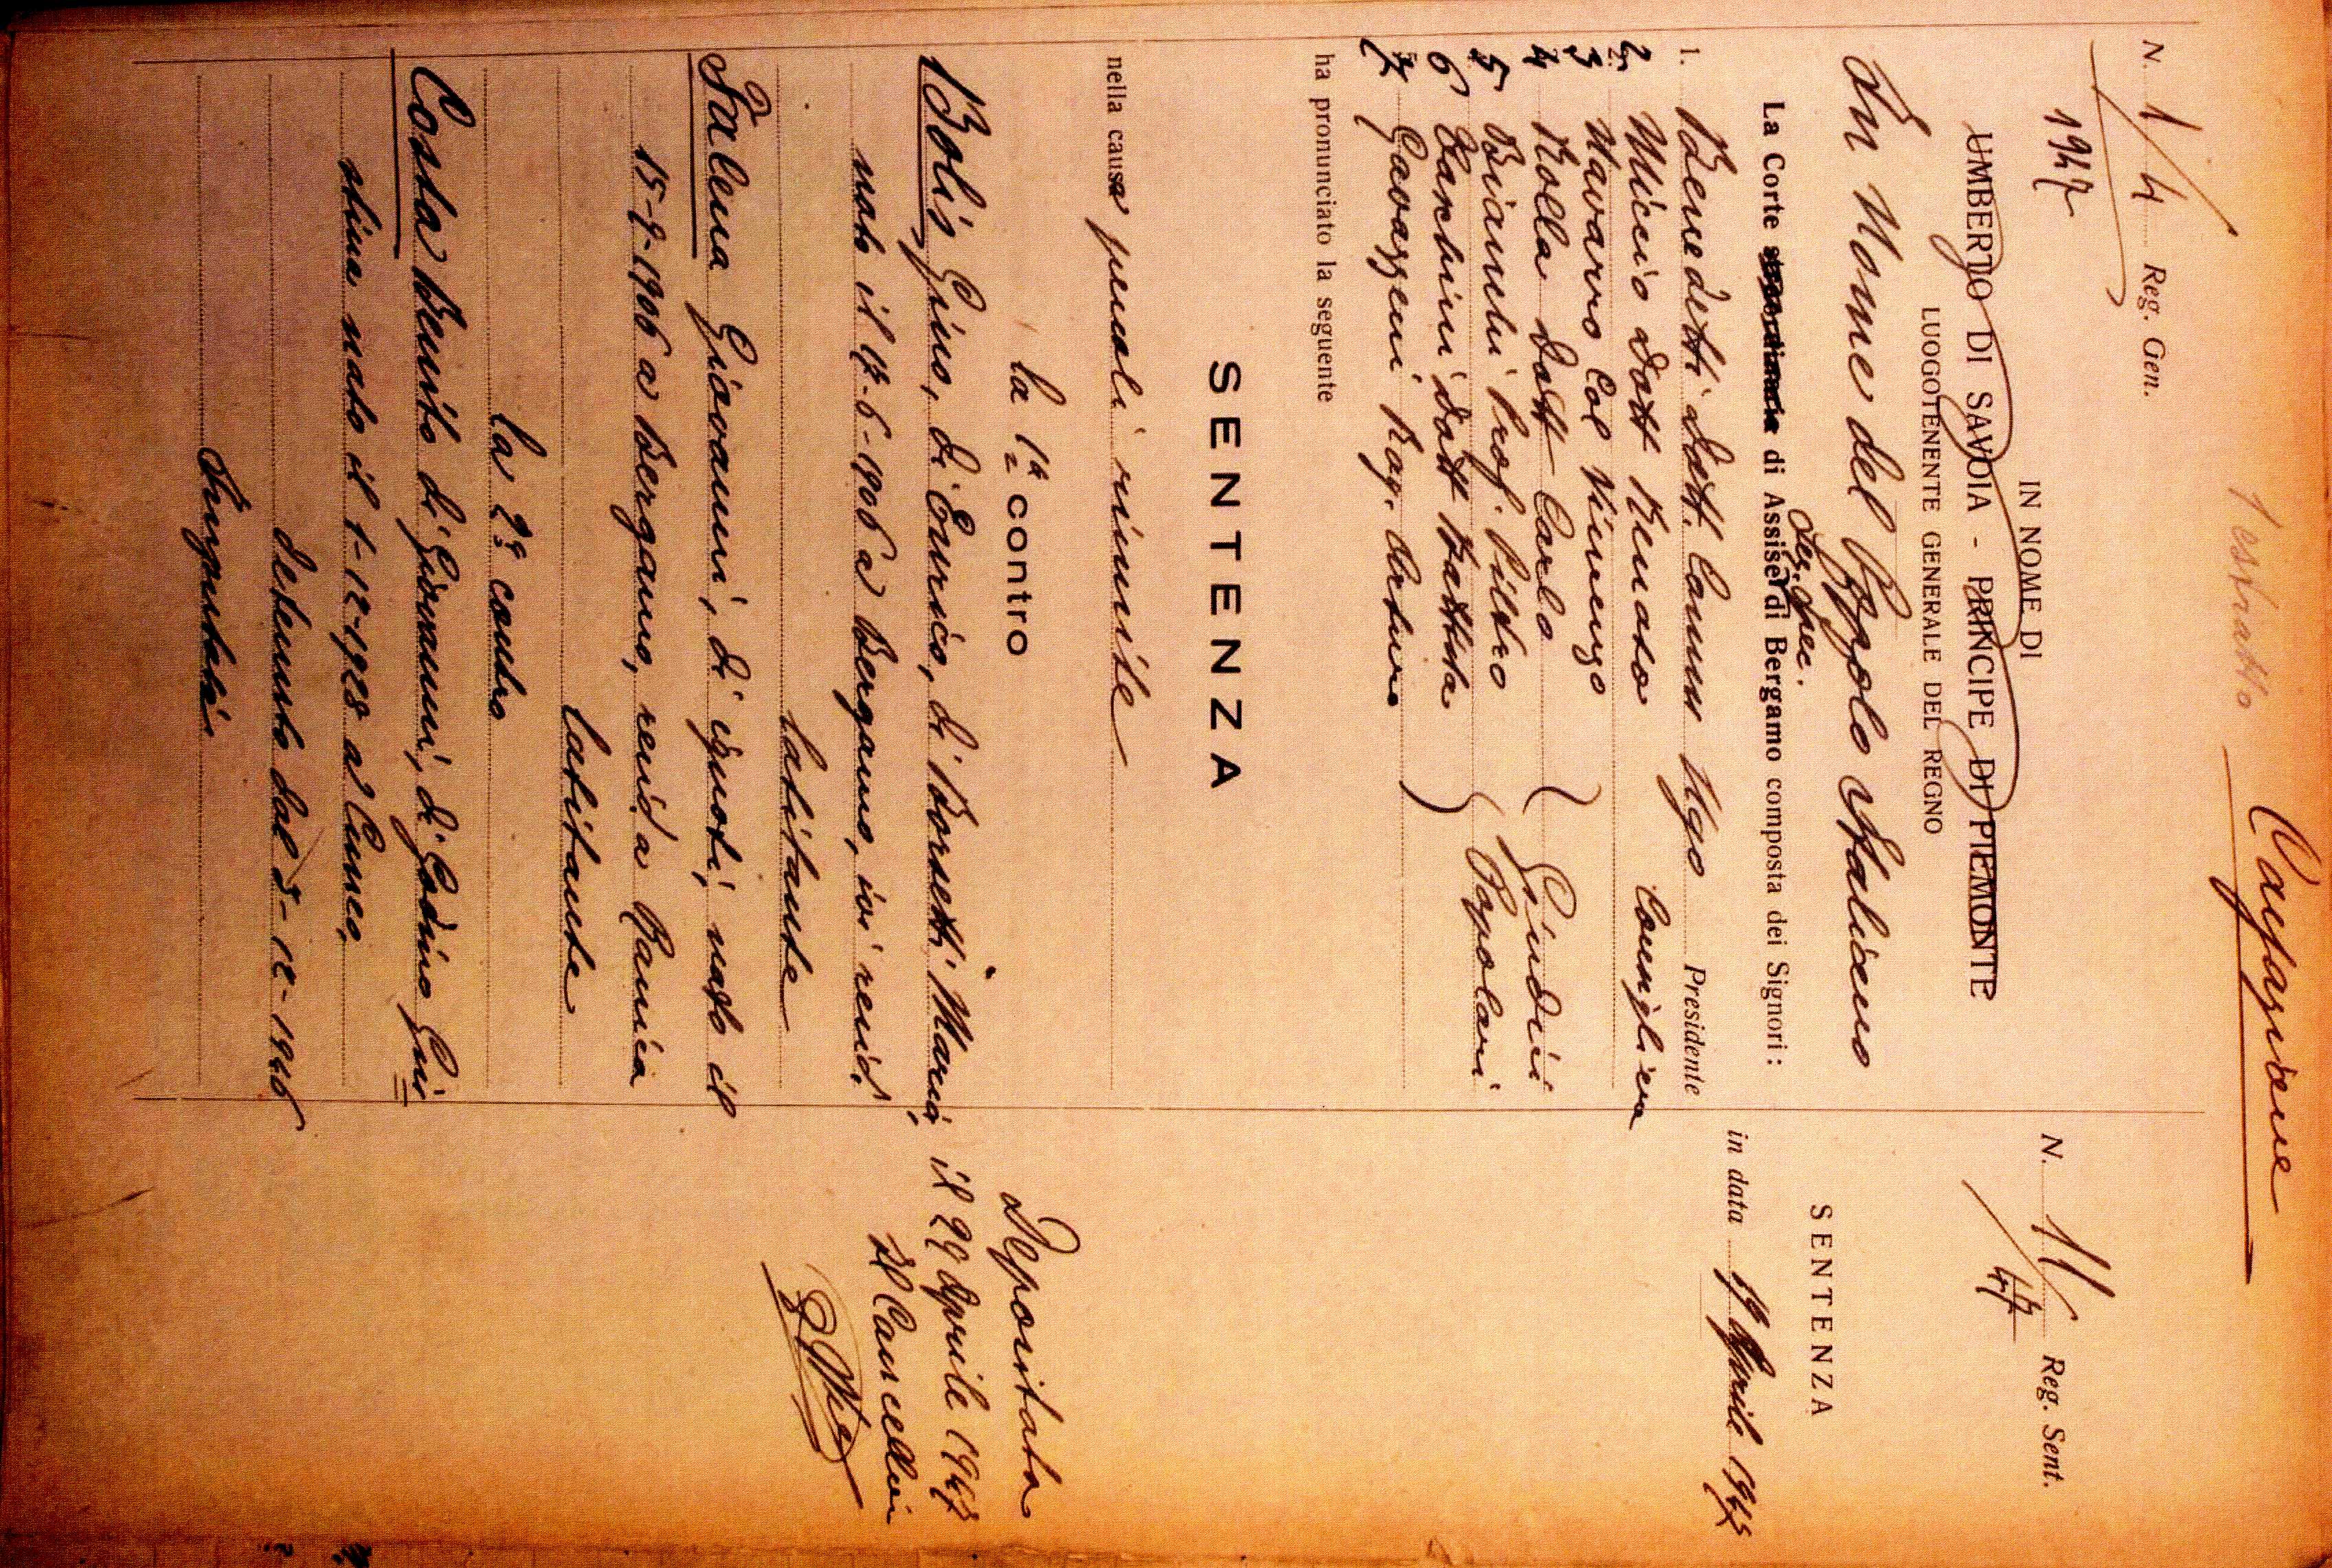 1 estratto
Cassazione
N. 1/4 Reg. Gen.
1947
IN NOME DI
UMBERTO DI SAVOIA - PRINCIPE DI PIEMONTE
LUOGOTENENTE GENERALE DEL REGNO
In Nome del Popolo Italiano
La Corte straordinaria di Assise Sez. Spec. di Bergamo composta dei Signori:
1. Benedetti dott. Comm Ugo Presidente
2 Muscio dott Renato Consigliere
3 Navarro Col Vincenzo
4 Rolla dott Carlo
5 Bianchi Prof. Pietro
6 Zanchini dott Battista
7 Gavazzeni Rag. Arturo
Giudici
Popolari
ha pronunciato la seguente
SENTENZA
nella causa penali riunite
la 1ª contro
Bolis Gino, di Enrico, di Borsetti Maria,
nato il 17-6-1906 a Bergamo, ivi resid.
latitante
Falena Giovanni, di ignoti, nato il
15-9-1906 a Bergamo, resid a Ranica
latitante
la 2ª contro
Costa Benito di Giovanni, di Godino Giu=
stina nato il 1-12-1928 a Cuneo,
detenuto dal 3-12-1946
Imputati
N. 11/47 Reg. Sent.
SENTENZA
in data 19 Aprile 1947
Depositata
il 29 Aprile 1947
Il Cancelliere